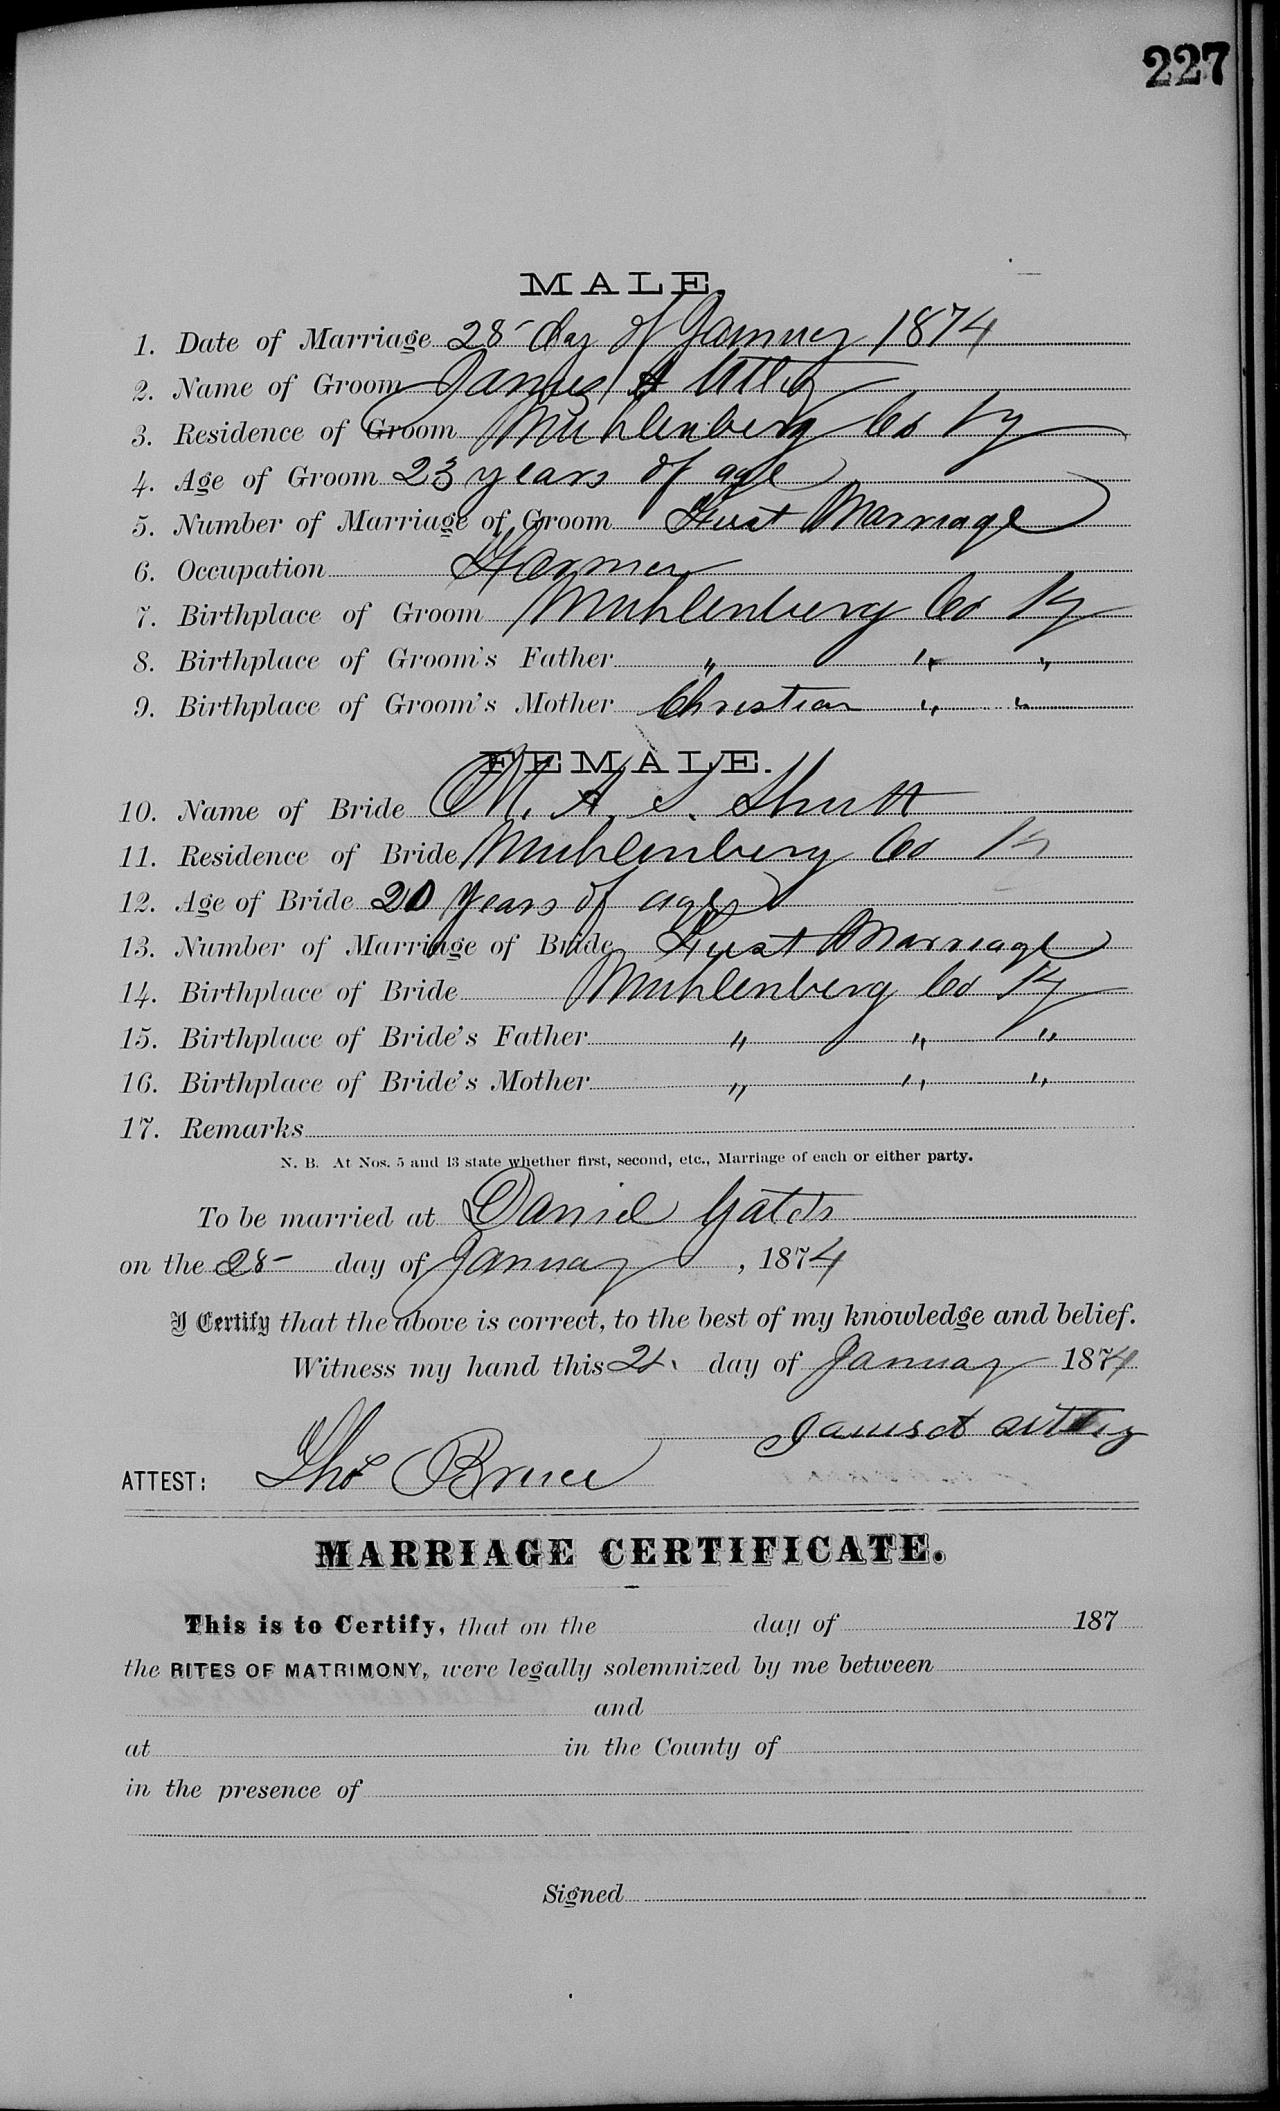 227
MALE.
1. Date of Marriage 28 - day of January 1874
2. Name of Groom James A
3. Residence of Groom Muhlenberg Co Ky
4. Age of Groom 23 years of age
5. Number of Marriage of Groom First Marriage
6. Occupation Farmer
7. Birthplace of Groom Muhlenberg Co Ky
8. Birthplace of Groom's Father " " "
9. Birthplace of Groom's Mother Christian " "
FEMALE.
10. Name of Bride M. A. S. Shutt
11. Residence of Bride Muhlenberg Co Ky
12. Age of Bride 20 years of age
13. Number of Marriage of Bride First Marriage
14. Birthplace of Bride Muhlenberg Co Ky
15. Birthplace of Bride's Father " " "
16. Birthplace of Bride's Mother " " "
17. Remarks
N. B. At Nos. 5 and 13 state whether first, second, etc., Marriage of each or either party.
To be married at Daniel
on the 28 - day of January, 1874
I Certify that the above is correct, to the best of my knowledge and belief.
Witness my hand this day of January 1874
ATTEST: Tho Bruce
MARRIAGE CERTIFICATE.
This is to Certify, that on the day of 187
the RITES OF MATRIMONY, were legally solemnized by me between
and
at in the County of
in the presence of
Signed